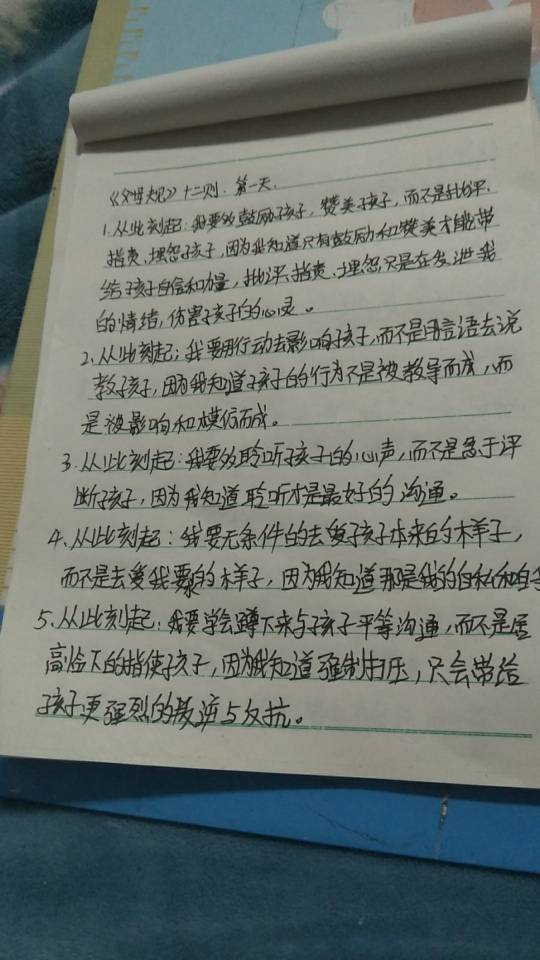 《父母规》十二则.第一天.
1.从此刻起:我要多鼓励孩子,赞美孩子,而不是批评、
指责、埋怨孩子,因为我知道只有鼓励和赞美才能带
给孩子自信和力量,批评、指责、埋怨只是在发泄我
的情绪,伤害孩子的心灵。
2.从此刻起;我要用行动去影响孩子,而不是用言语去说
教孩子,因为我知道孩子的行为不是被教导而成,而
是被影响和模仿而成。
3.从此刻起:我要多聆听孩子的心声,而不是急于评
断孩子,因为我知道聆听才是最好的沟通。
4.从此刻起:我要无条件的去爱孩子本来的样子,
而不是去爱我要的样子,因为我知道那是我的自私和自
5.从此刻起:我要学会蹲下来与孩子平等沟通,而不是居
高临下的指使孩子,因为我知道强制打压,只会带给
孩子更强烈的叛逆与反抗。